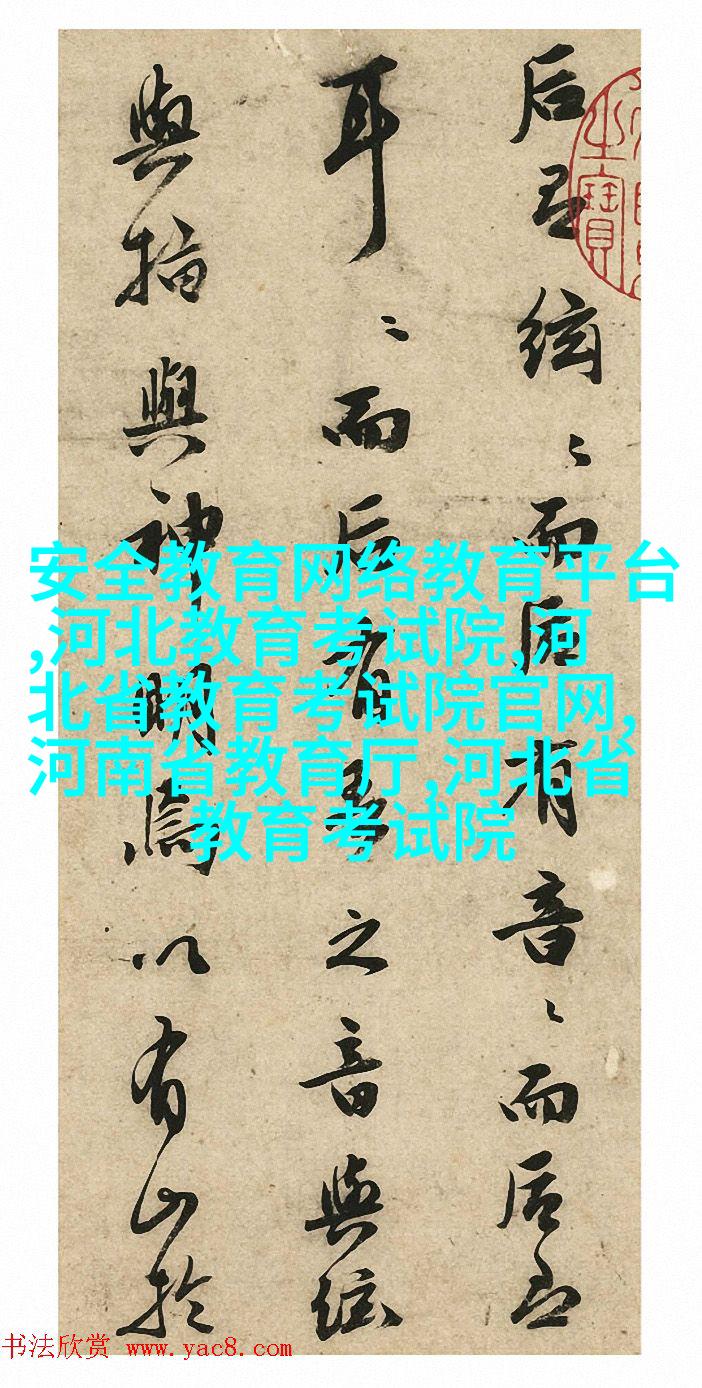 后 絃〻而后有音〻而后
耳〻而后有 之音與絃
與指與神明焉以有山於
之寶
安全教育网络教育平台
,河北教育考试院,河
北省教育考试院官网,
河南省教育厅,河北省
教育考试院
书法欣赏 www.yac8.com